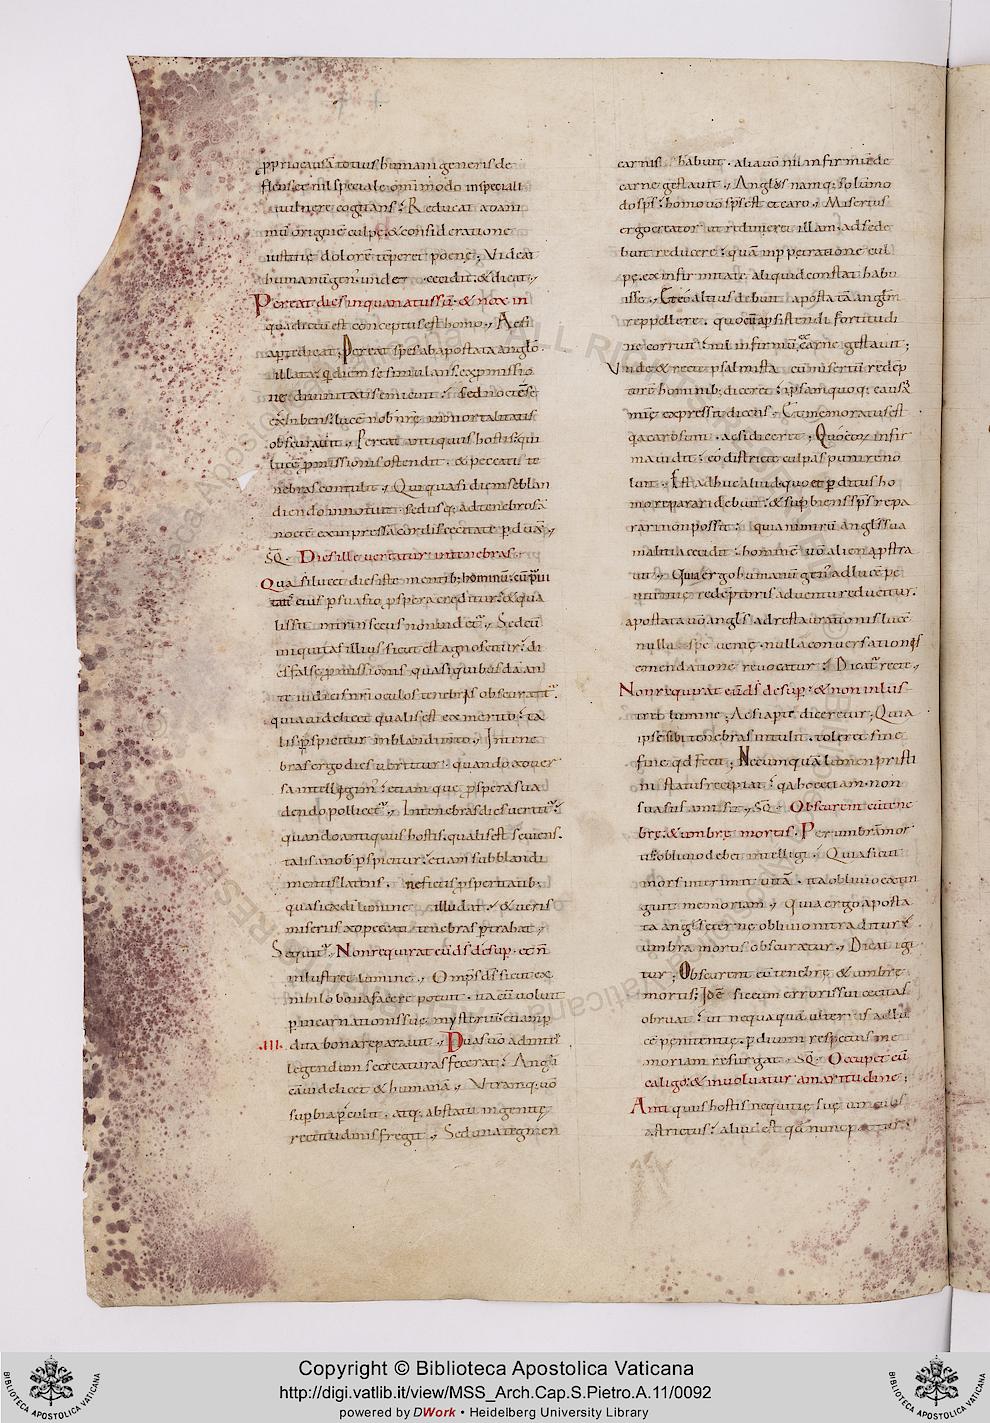 p̱priocausā totius humani generis de
flens, et nil speciale om̄imodo inspeciali
vulnere cogitans; Reducat adani
mū originē culpę, & consideratione
iustitię dolorē tēperet poenę; Videat
humanū gen' unde cecidit, & dicat,
Pereat dies in qua natus sū, & nox in
qua dictū est conceptus est homo, Acsi
aperte dicat; Pereat spes ab apostata anglo
illata, q̄ diem se simulans ex p̱missio
ne divinitatis emicuit; sed noctē se
exhibens, lucē nob nr̄ę inmortalitatis
obscuravit, Pereat antiquus hostis, qui
lucē p̱missionis ostendit, & peccati te
nebras contulit, Qui quasi diem se blan
diendo innotuit, sed usq; ad tenebrosā
noctē ex inpressa cordis cecitate p̱duxit,
SQ. Dies ille vertatur in tenebras.
Quasi lucet dies iste mentib; hominū, cū pravi
tatis eius p̱suasio p̱spera creditur; & qua
lis sit intrinsecus non videt', Sed cū
iniquitas illius sicut est agnoscitur; di
es falsę p̱missionis quasi quibusdā an
te iudicii nr̄i oculos tenebris obscuratur.
quia videlicet qualis est ex merito; ta
lis p̱spicitur in blandimento, In tene
bras ergo dies vertitur; quando adver
sa intelligim'; etiam quę p̱spera sua
dendo pollicet', In tenebras dies vertit';
quando antiquus hostis, qualis est sęviens.
talis a nob p̱spicitur; etiam sub blandi
mentis latens, ne fictis p̱speritatib;
quasi ex diei lumine illudat, & veris
miseriis ad peccati tenebras p̱trahat,
Sequit', Non requirat eū ds desup̱, et n̄
inlustret lumine, Omp̄s ds sicut ex
nihilo bona facere potuit, ita cū voluit
p̱ incarnationis suę mysteriū; etiam p̱
.III. dita bona reparavit, Duas vō ad intel
legendum se creaturas fecerat; Angli
cā videlicet & humanā, Utramq; vō
sup̱bia p̱culit, atq; ab statu ingenitę
rectitudinis fregit, Sed una tegmen
carnis habuit, alia vō nil infirmū de
carne gestavit, Anglus namq; solumo
do sp̄s; homo vō sp̄s est et caro, Misertus
ergo creator ut redimeret, illam ad se de
buit reducere; quā in p̱petratione cul
pę, ex infirmitate aliquid constat habu
isse, Et eo altius debuit apostatā anglm
repellere, quo cū a p̱sistendi fortitudi
ne corruit; nil infirmū ex carne gestavit;
Unde & recte psalmista cū misertū redēp
torē hominib; diceret; ipsam quoq; causā
mię expressit dicens, Et memoratus est
q̄a caro sunt, acsi diceret; Quo eoꝝ infir
ma vidit; eo districte culpas punire no
luit, Est adhuc aliud, quo et p̱ditus ho
mo reparari debuit; & sup̱biens sp̄s repa
rari non possit; quia nimirū angls sua
malitia cecidit; hominē vō aliena p̱stra
vit, Quia ergo humanū gen' ad lucē pę
nitentię redēptoris adventu reducitur.
apostata vō angls ad restaurationis lucē
nulla spe venię, nulla conversationis
emendatione revocatur; Dicat' recte,
Non requirat eū ds desup̱; & non inlus
tret lumine; Acsi aperte diceretur; Quia
ipse sibi tenebras intulit, toleret sine
fine qd fecit; Nec umquā lumen pristi
ni status recipiat; q̄a hoc etiam non
suasus amisit, SQ. Obscurent eū tene
brę, & umbrę mortis. Per umbrā mor
tis, oblivio debet intelligi, Quia sicut
mors interimit vitā, ita oblivio extin
guit memoriam, Quia ergo aposta
ta angls eternę oblivioni traditur;
umbra mortis obscuratur, Dicat igi
tur; Obscurent eū tenebrę & umbrę
mortis; Idē sic eum erroris sui cecitas
obruat; ut nequaquā ulterius ad lu
cē penitentię, p̱ divini respectus me
moriam resurgat, SQ. Occupet eū
caligo, & involvatur amaritudine;
Antiquus hostis nequitię suę vinculis
astrictus; aliud est qd nunc patitur;
Copyright © Biblioteca Apostolica Vaticana
http://digi.vatlib.it/view/MSS_Arch.Cap.S.Pietro.A.11/0092
powered by DWork • Heidelberg University Library
BIBLIOTECA APOSTOLICA VATICANA
BIBLIOTECA APOSTOLICA VATICANA